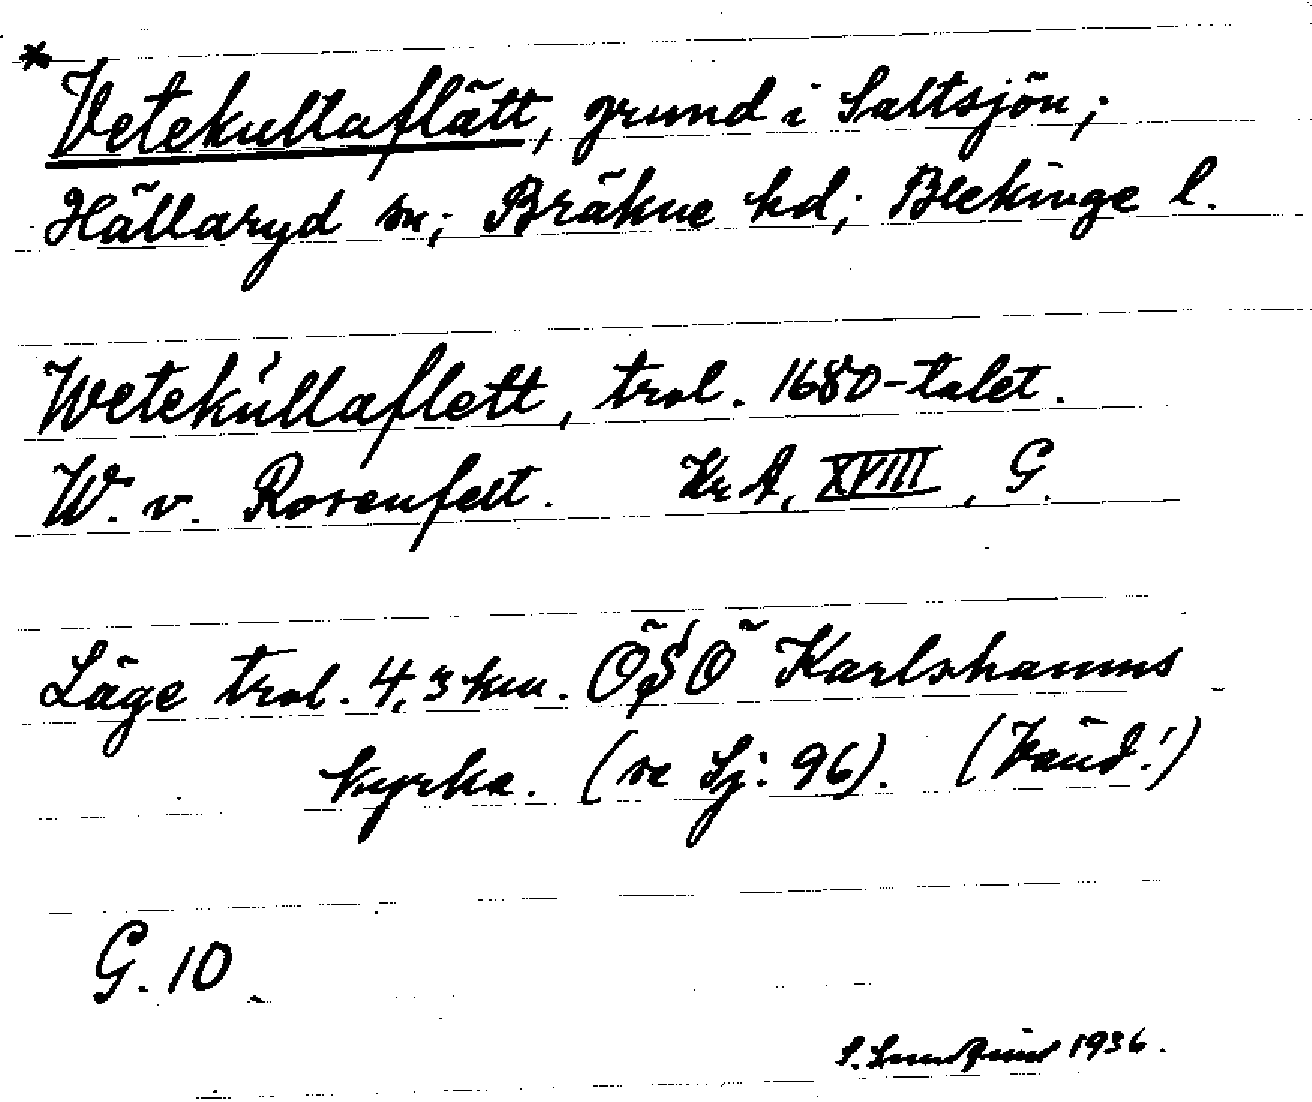 *Vetekullaflätt, grund i Saltsjön;
Hällaryd sn; Bräkne hd; Blekinge l.
Wetekullaflett, trol. 1680-talet.
W. v. Rosenfelt. Kr A, XVIII, G.
Läge trol. 4,3 km. Ö Karlshamns
kyrka. (se Sj: 96). (Vänd!)
G. 10
1936.